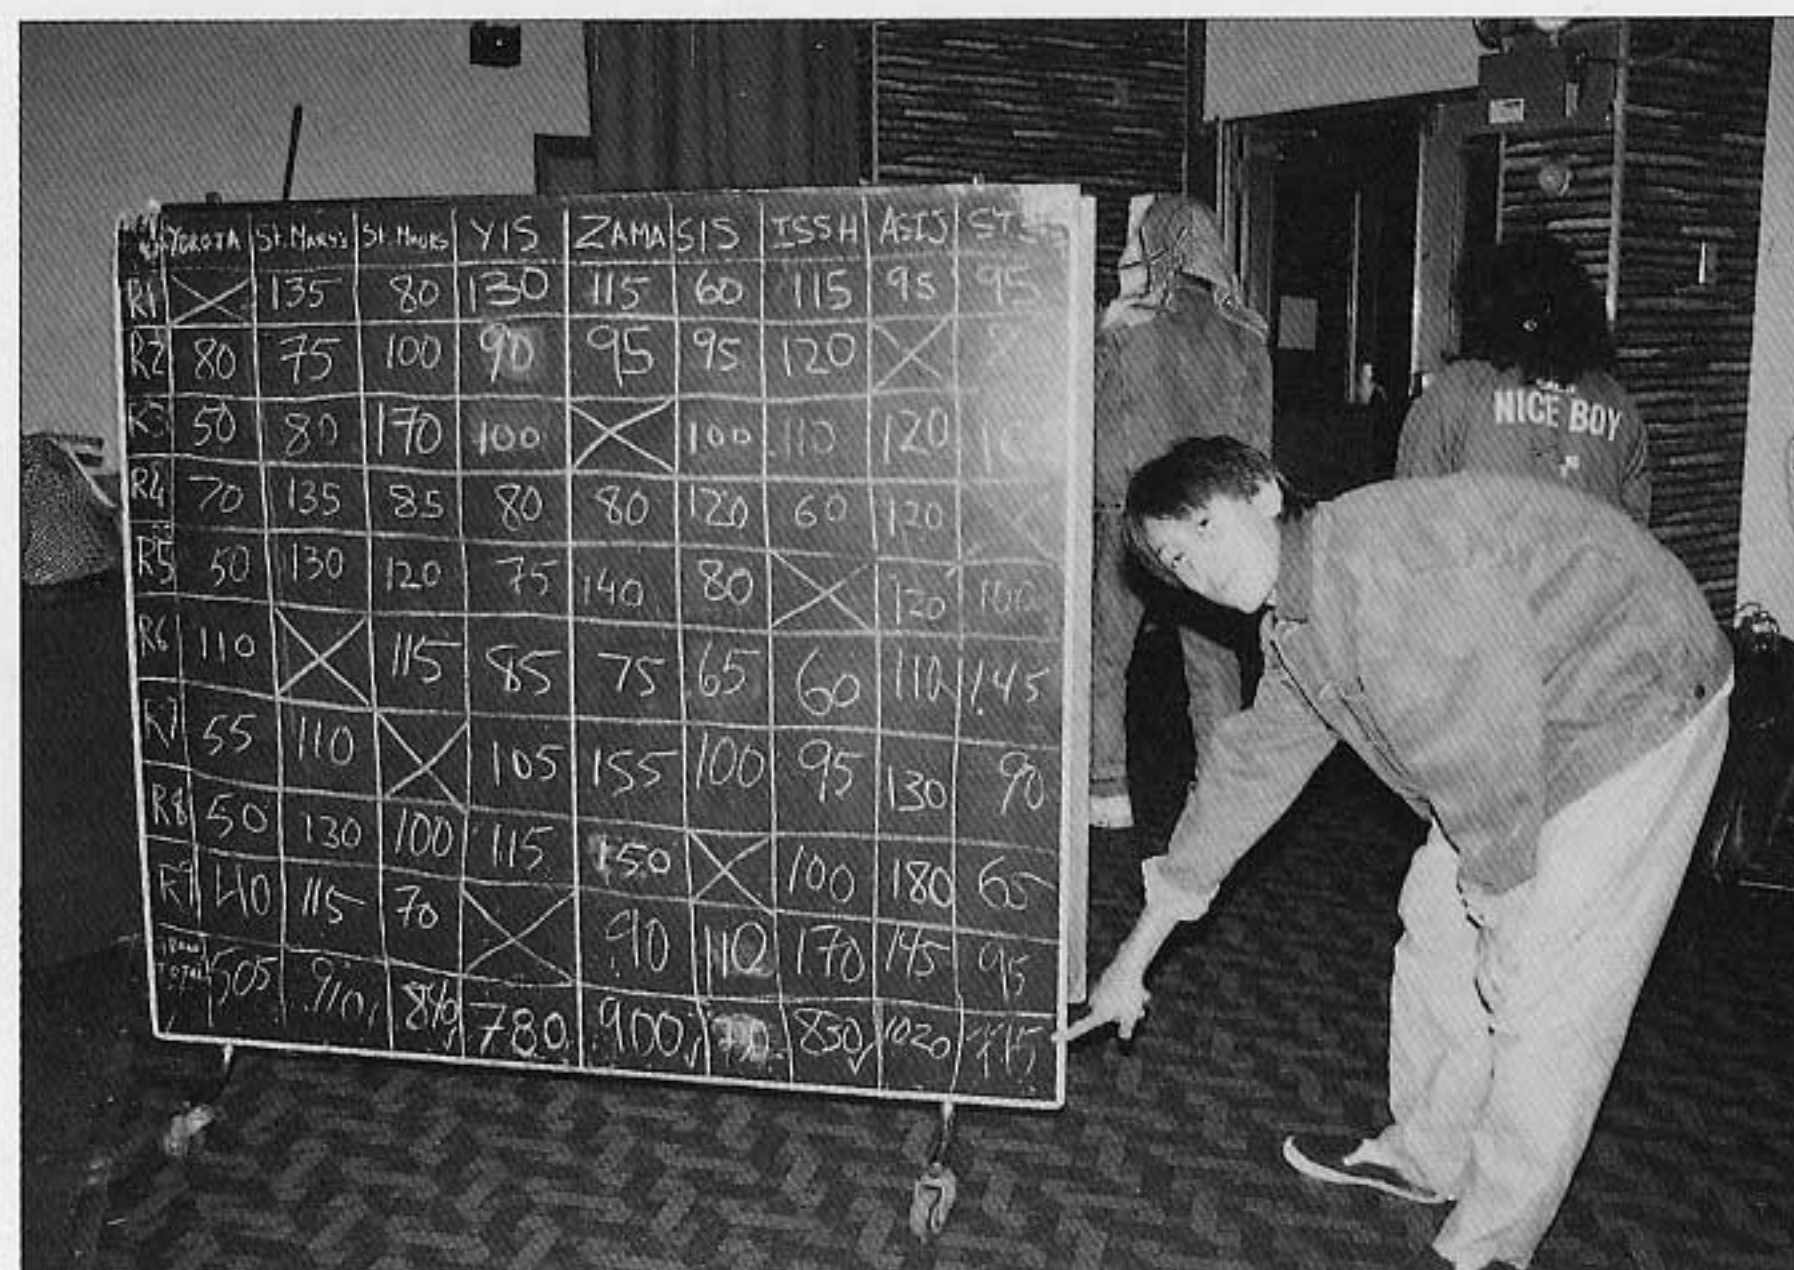 YOKOTA St. MARY'S St. MAURS YIS ZAMA SIS ISSH ASIJ
R1 135 80 130 115 60 115 95 95
R2 80 75 100 90 95 95 120
R3 50 80 170 100 100 110 120
R4 70 135 85 80 80 120 60 120
R5 50 130 120 75 140 80 120 100
R6 110 115 85 75 65 60 110 145
R7 55 110 105 155 100 95 130 90
R8 50 130 100 115 150 100 180 65
R9 40 115 70 90 110 170 145 95
TOTAL 505 910 840 780 900 730 830 1020
NICE BOY